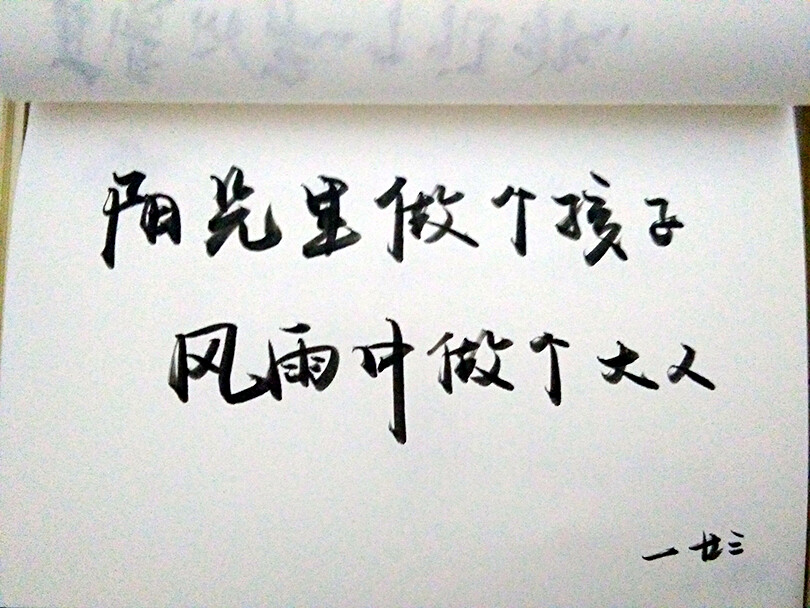 阳光里做个孩子
风雨中做个大人
一 廿三